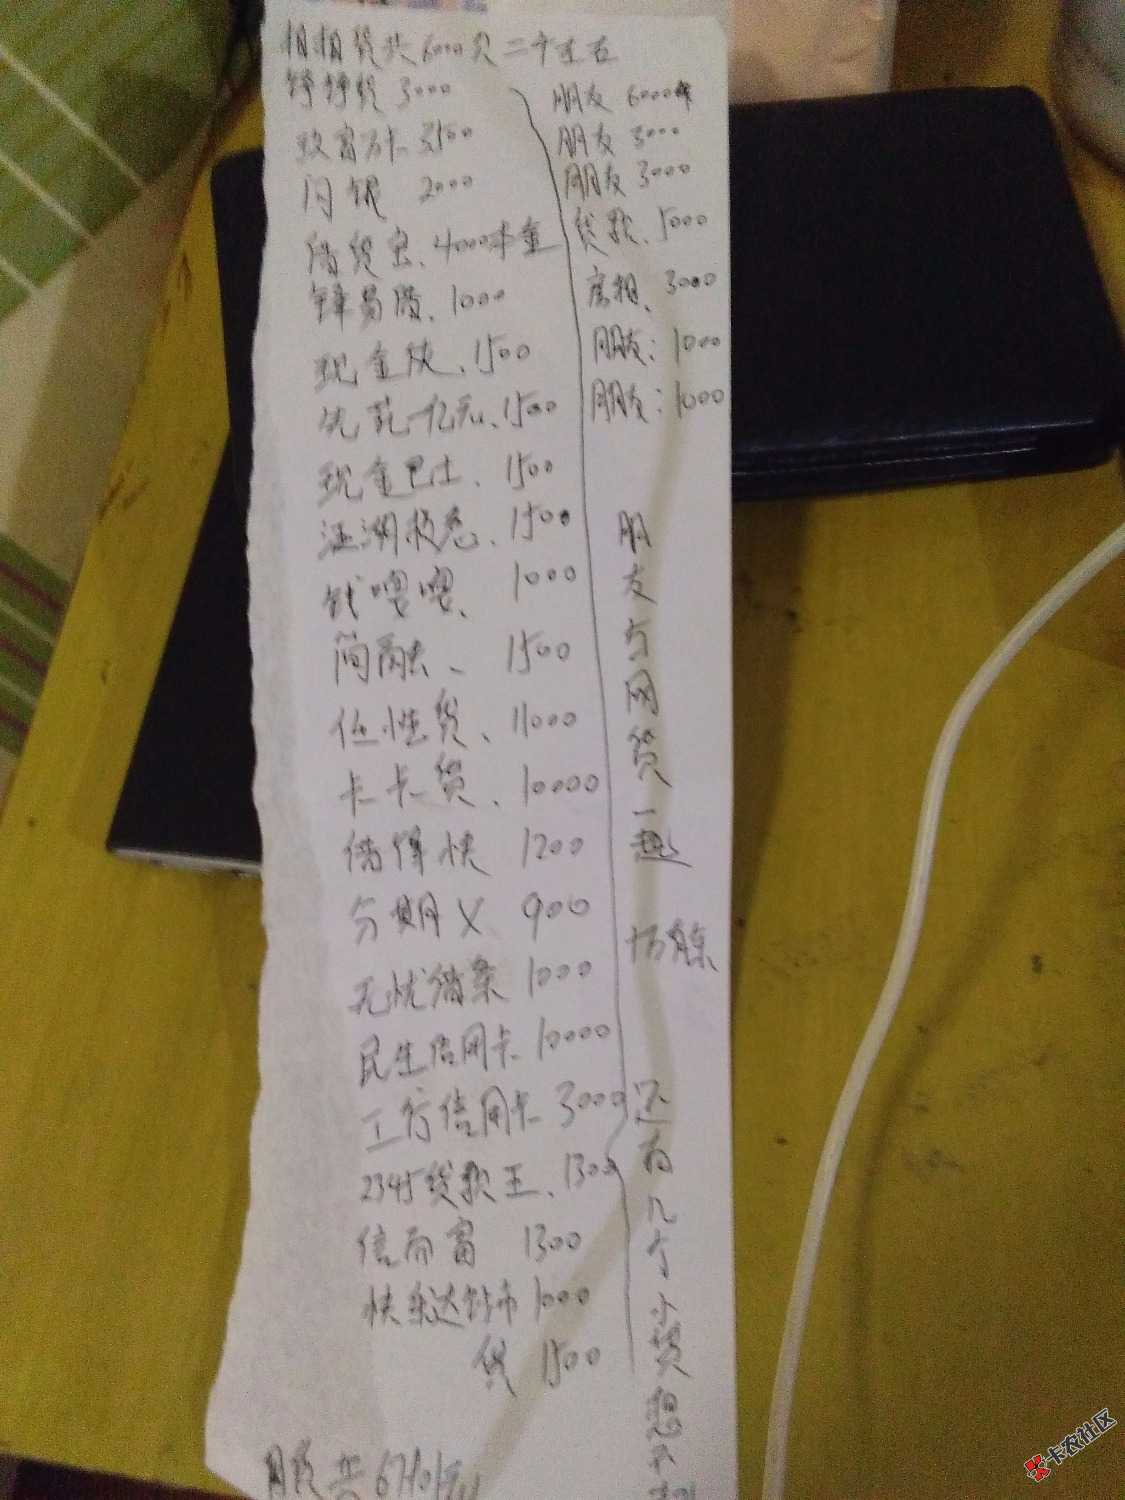 相相贷共6000欠二千左右
铮铮贷 3000
致富万卡 3500
闪银 2000
借贷宝、4000本金
1000
现金侠、1500
先花一亿元、1500
现金巴士、1500
江湖救急、1500
钱嘚嘚、1000
简融、1500
任性贷、11000
卡卡贷、10000
借得快 1200
分期X 900
无忧借条 1000
民生信用卡 10000
工行信用卡 3000
2345贷款王、1300
信而富 1300
快来达 1000
贷 1500
共
朋友 6000
朋友 3000
朋友 3000
贷款、5000
房租、3000
朋友：1000
朋友：1000
朋友与网贷一起
还有几个小贷想不
卡农社区